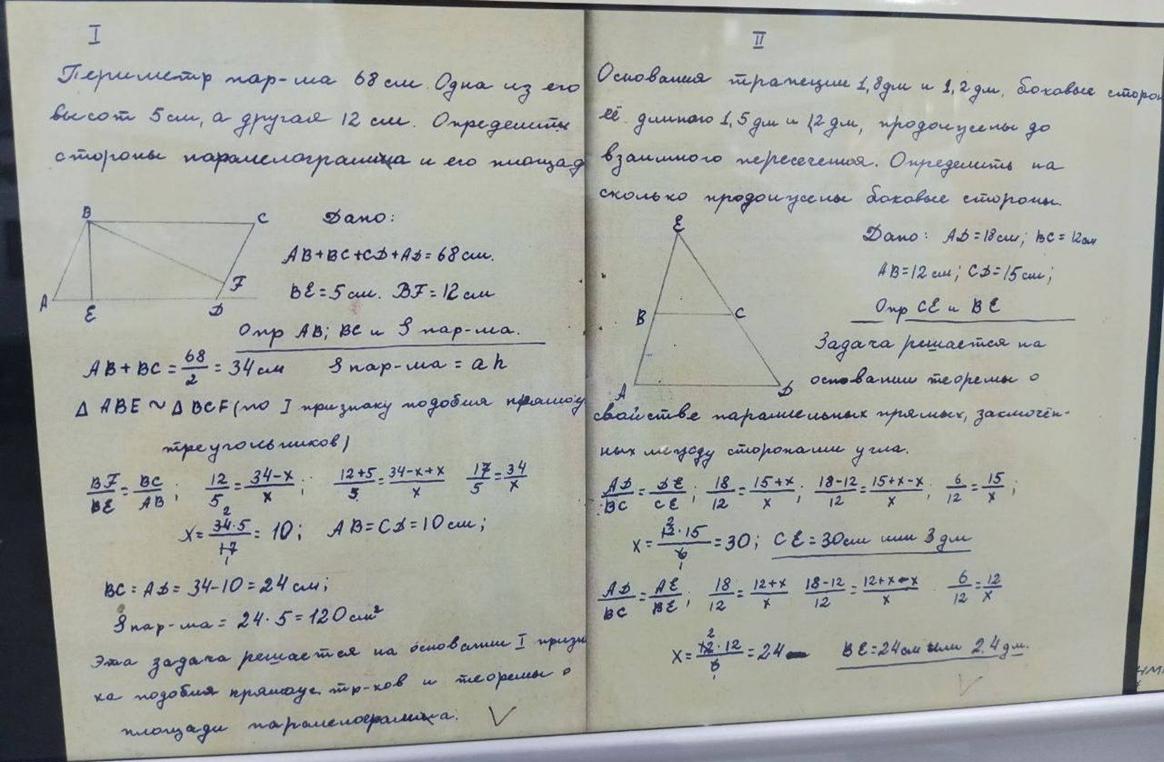 I
Периметр пар-ма 68 см. Одна из его
высот 5 см, а другая 12 см. Определить
стороны параллелограмма и его площад
B
C
F
A
E
D
Дано:
AB+BC+CD+AD=68 см.
BE=5 см. BF=12 см
Опр AB; BC и S пар-ма.
AB+BC=68/2=34 см S пар-ма = ah
Δ ABE ~ Δ BCF (по I признаку подобия прямоу
треугольников)
BF/BE=BC/AB; 12/5=34-x/x; 12+5/5=34-x+x/x 17/5=34/x
x=34·5/17=10; AB=CD=10 см;
BC=AD=34-10=24 см;
S пар-ма = 24·5=120 см²
Эта задача решается на основании I призн
ка подобия прямоуг. тр-ков и теоремы о
площади параллелограмма.
II
Основания трапеции 1,8 дм и 1,2 дм, боковые сторон
её длиною 1,5 дм и 1,2 дм, продолжены до
взаимного пересечения. Определить на
сколько продолжены боковые стороны.
E
B
C
A
D
Дано: AD=18 см; BC=12 см
AB=12 см; CD=15 см;
Опр CE и BE
Задача решается на
основании теоремы о
свойстве параллельных прямых, заключён-
ных между сторонами угла.
AD/BC=DE/CE; 18/12=15+x/x; 18-12/12=15+x-x/x; 6/12=15/x;
x=12·15/6=30; CE=30 см или 3 дм
AD/BC=AE/BE; 18/12=12+x/x 18-12/12=12+x-x/x 6/12=12/x
x=12·12/6=24 BE=24 см или 2.4 дм.